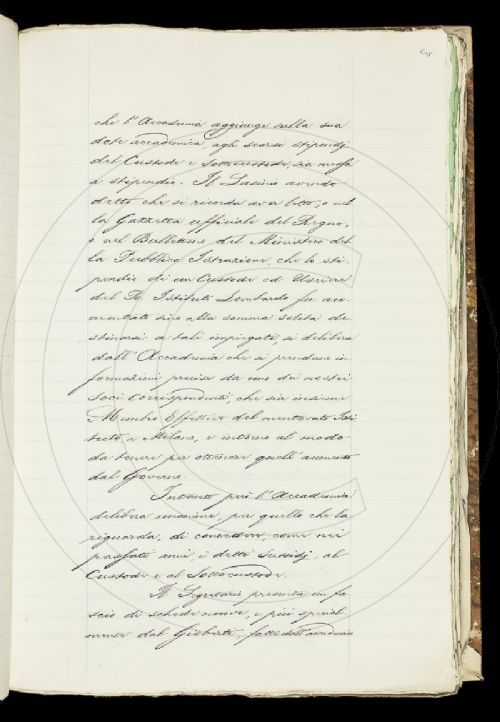 che l'Accademia aggiunge sulla sua
dote accademica, agli scarsi stipendj
del Custode e Sottocustode, sia messa
a stipendio. Il Lasinio avendo
detto che si ricorda aver letto, o nel
la Gazzetta ufficiale del Regno,
o nel Bullettino del Ministero del
la Pubblica Istruzione, che lo sti
pendio di un Custode ed Usciere
del R. Istituto Lombardo fu au
mentato sino alla somma solita de
stinarsi a tali impiegati, si delibera
dall'Accademia che si prendano in
formazioni precise da uno dei nostri
Soci Corrispondenti, che sia insieme
Membro Effettivo del mentovato Isti
tuto a Milano, e intorno al modo
da tenere per ottenere quell'aumento
dal Governo.
Intanto però l'Accademia
delibera unanime, per quello che la
riguarda, di concedere, come nei
passati anni, i detti sussidj, al
Custode e al Sottocustode.
Il Segretario presenta un fa
scio di schede nuove, e più special
mente del Gioberti, fatte dall'accademico